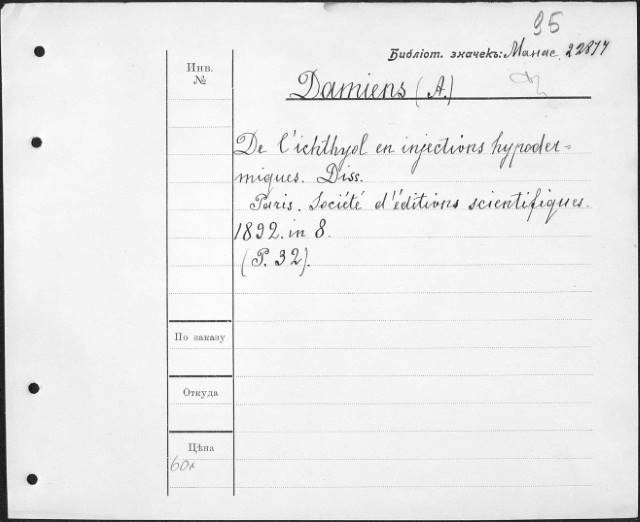 95
Библіот. значекъ: Манас. 22877
Инв.
№
Damiens (A.)
De l'ichthyol en injections hypoder=
miques. Diss.
Paris. Société d'éditions scientifiques.
1892. in 8.
(P. 32).
По заказу
Откуда
Цѣна
60к